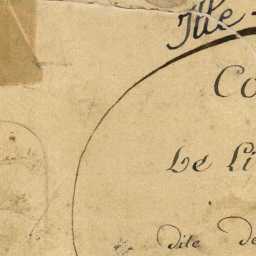 Ille
Co
Le Li
dite de